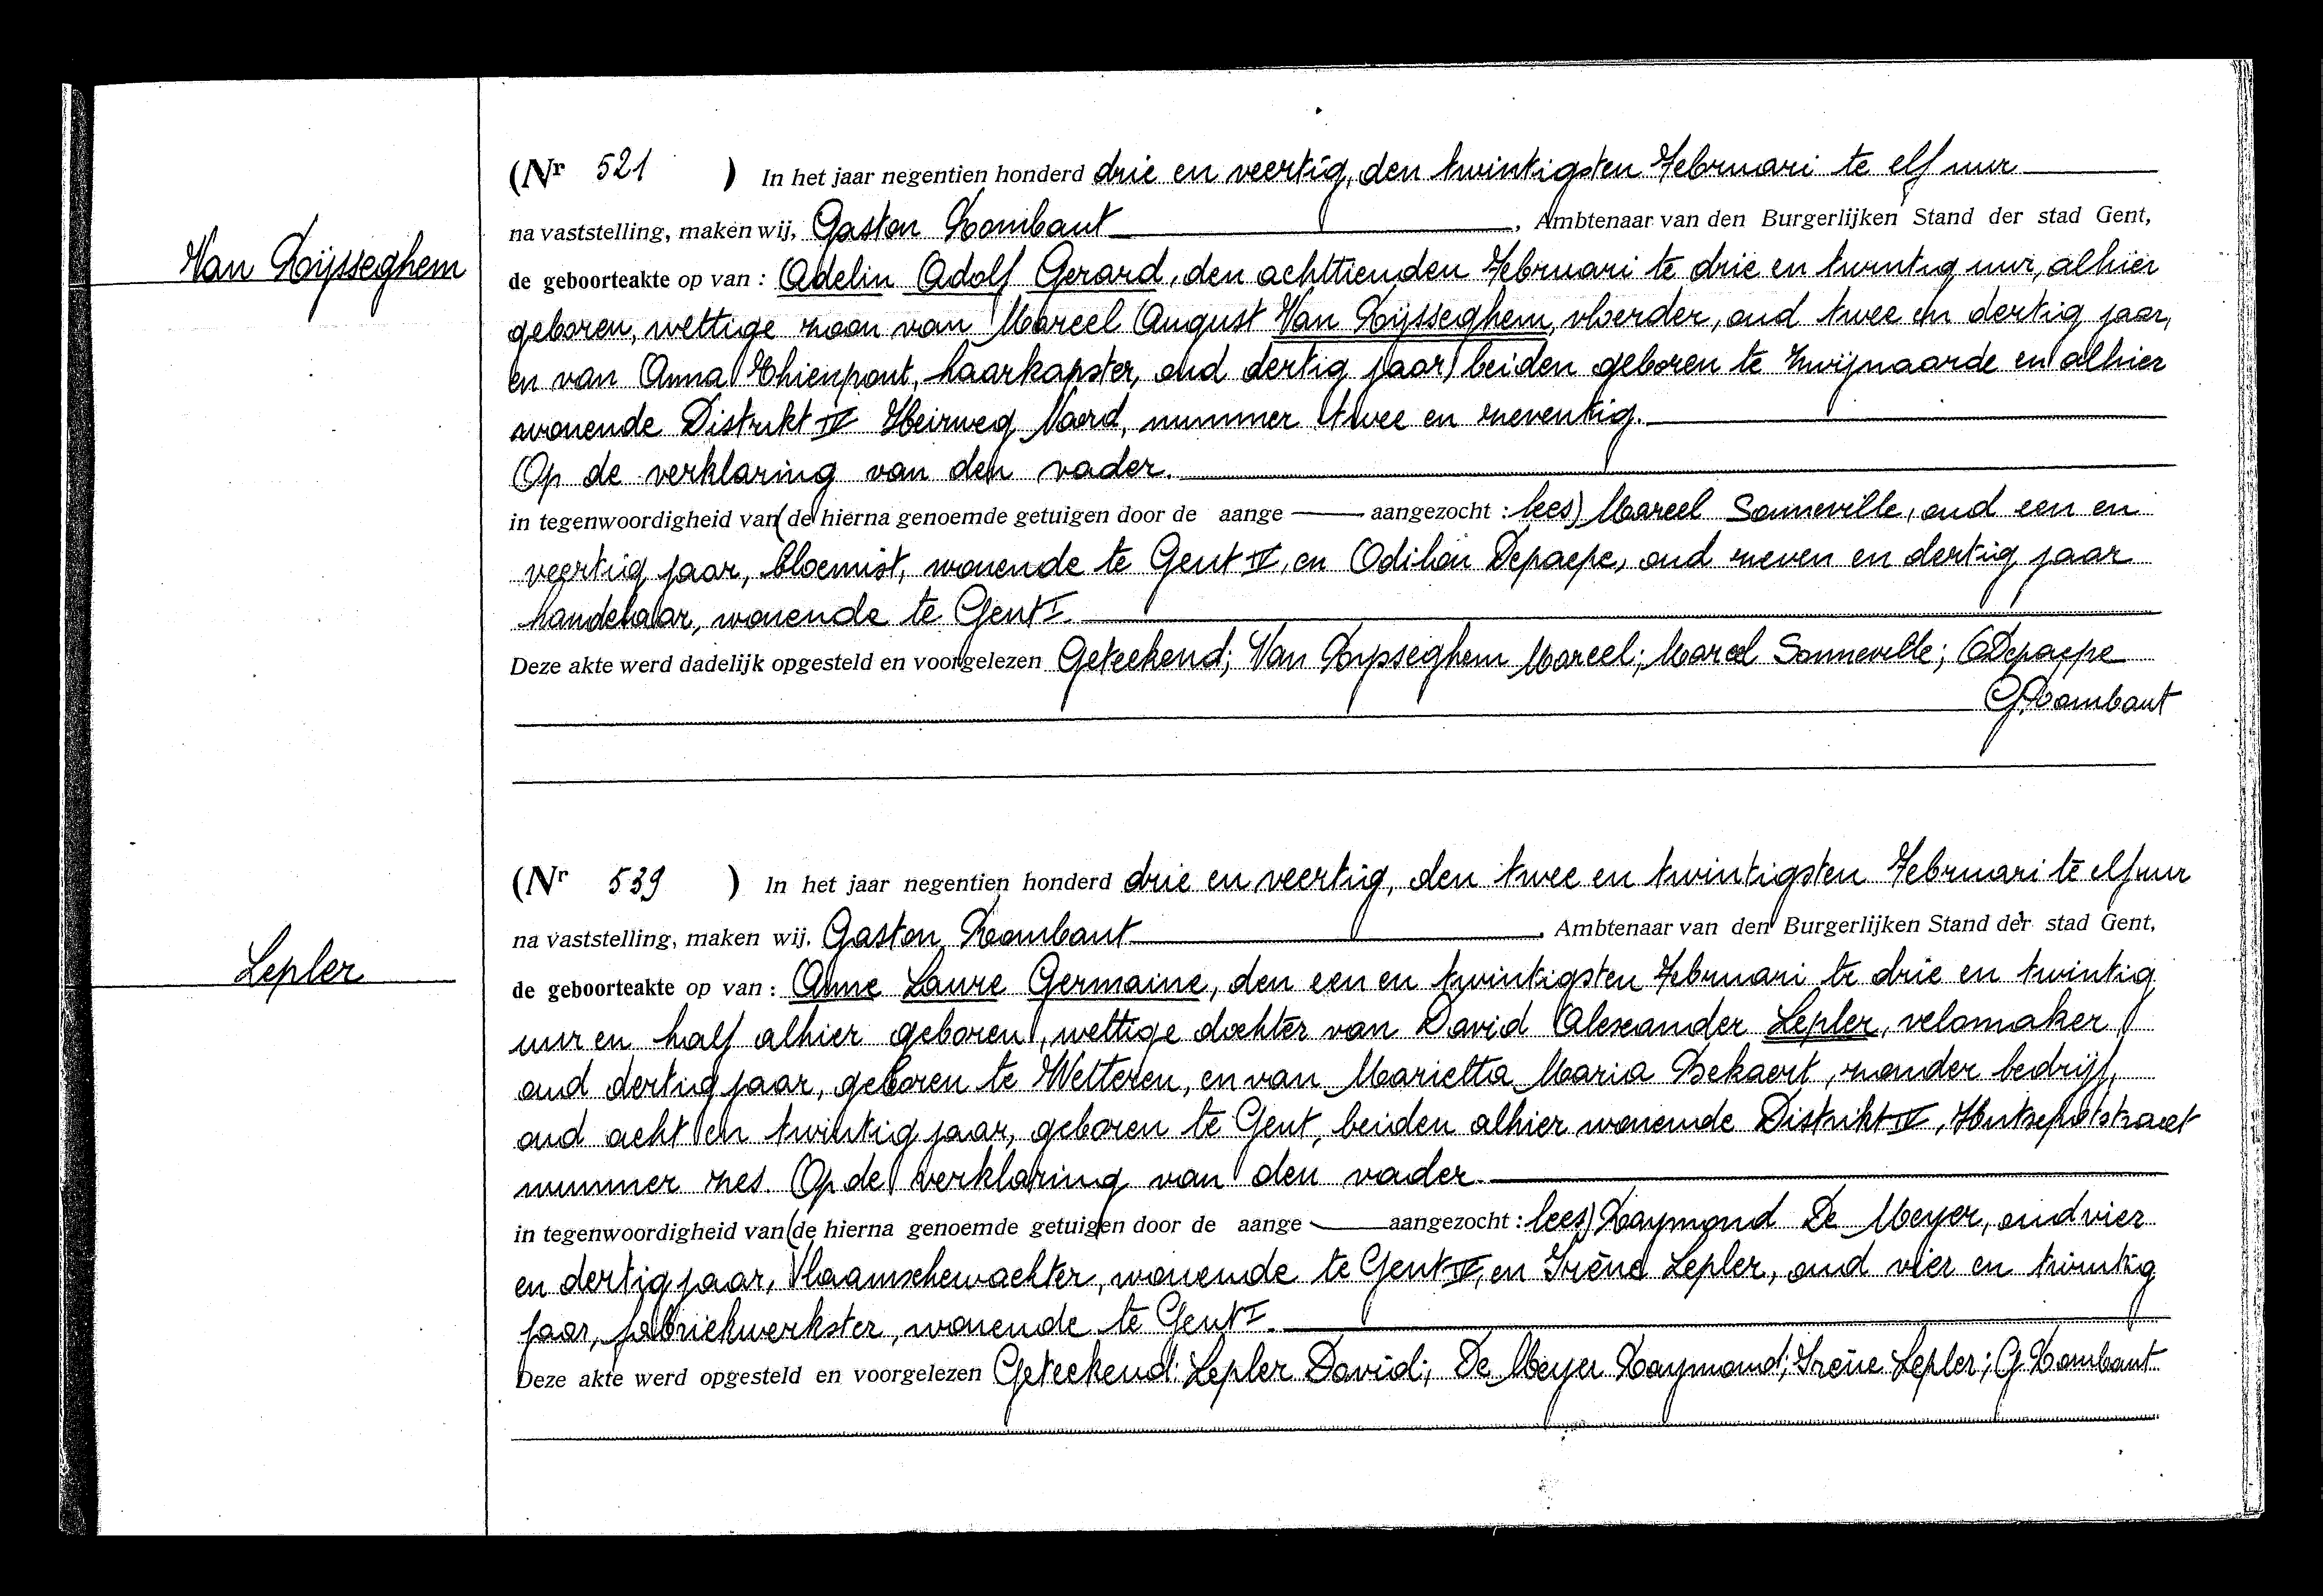 (Nr 521 ) In het jaar negentien honderd drie en veertig, den twintigsten Februari te elf uur
na vaststelling, maken wij, Gaston Rombaut , Ambtenaar van den Burgerlijken Stand der stad Gent,
Van Rijsseghem
de geboorteakte op van : Adelin Adolf Gerard, den achttienden Februari te drie en twintig uur, alhier
geboren, wettige zoon van Marcel August Van Rijsseghem, vloerder, oud twee en dertig jaar,
en van Anna Thienpont, haarkapster, oud dertig jaar, beiden geboren te Zwijnaarde en alhier
wonende Distrikt IV Heirweg Noord, nummer twee en zeventig.
Op de verklaring van den vader.
in tegenwoordigheid van (de hierna genoemde getuigen door de aange aangezocht : lees) Marcel Sonneville, oud een en
veertig jaar, bloemist, wonende te Gent IV, en Odilon Depaepe, oud zeven en dertig jaar
handelaar, wonende te Gent I.
Deze akte werd dadelijk opgesteld en voorgelezen Geteekend; Van Rysseghem Marcel; Marcel Sonneville; O Depaepe
G. Rombaut
(Nr 539 ) In het jaar negentien honderd drie en veertig, den twee en twintigsten Februari te elf uur
na vaststelling, maken wij. Gaston Rombaut , Ambtenaar van den Burgerlijken Stand der stad Gent,
Lepler
de geboorteakte op van : Anne Laure Germaine, den een en twintigsten Februari te drie en twintig
uur en half alhier geboren, wettige dochter van David Alexander Lepler, velomaker
oud dertig jaar, geboren te Wetteren, en van Marietta Maria Bekaert, zonder bedrijf,
oud acht en twintig jaar, geboren te Gent, beiden alhier wonende Distrikt IV, Hutsepotstraat
nummer zes. Op de verklaring van den vader.
in tegenwoordigheid van (de hierna genoemde getuigen door de aange aangezocht : lees) Raymond De Meyer, oud vier
en dertig jaar, Vlaamschewachter, wonende te Gent IV, en Irène Lepler, oud vier en twintig
jaar, fabriekwerkster, wonende te Gent I.
Deze akte werd opgesteld en voorgelezen Geteekend: Lepler David; De Meyer Raymond; Irène Lepler; G Rombaut